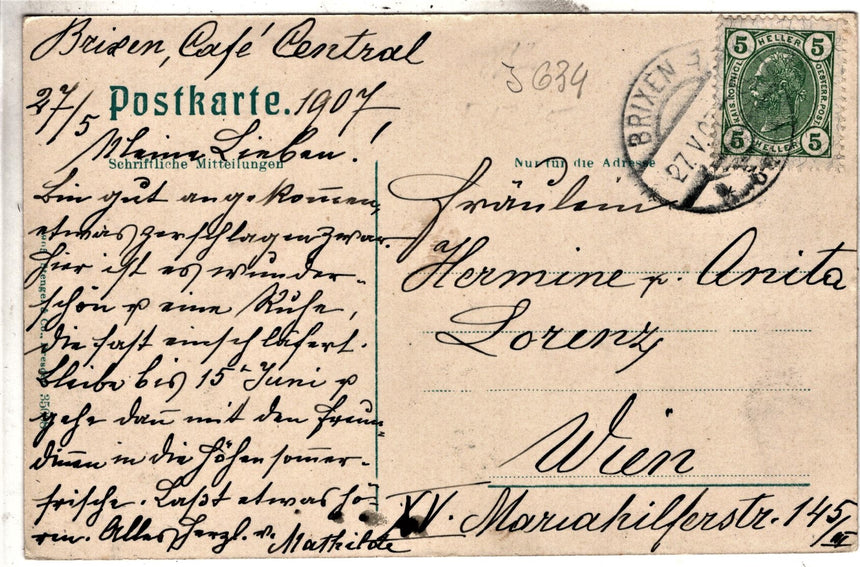 Brixen, Café Central
27/5 1907,
Postkarte.
Meine Lieben!
Schriftliche Mitteilungen
Bin gut angekommen,
etwas zerschlagen zwar.
Hier ist es wunder-
schön u eine Ruhe,
die fast einschläfert.
Bleibe bis 15t Juni u
gehe dann mit den Freun-
dinnen in die Höhensommer-
frische. Laßt etwas hö-
ren. Alles herzl. v.
Mathilde
J 634
Nur für die Adresse
BRIXEN
27.V.
5 HELLER 5
KAIS. KOENIGL. OESTERR. POST
5 HELLER 5
Fräulein
Hermine u. Anita
Lorenz
Wien
XV. Mariahilferstr. 145/III